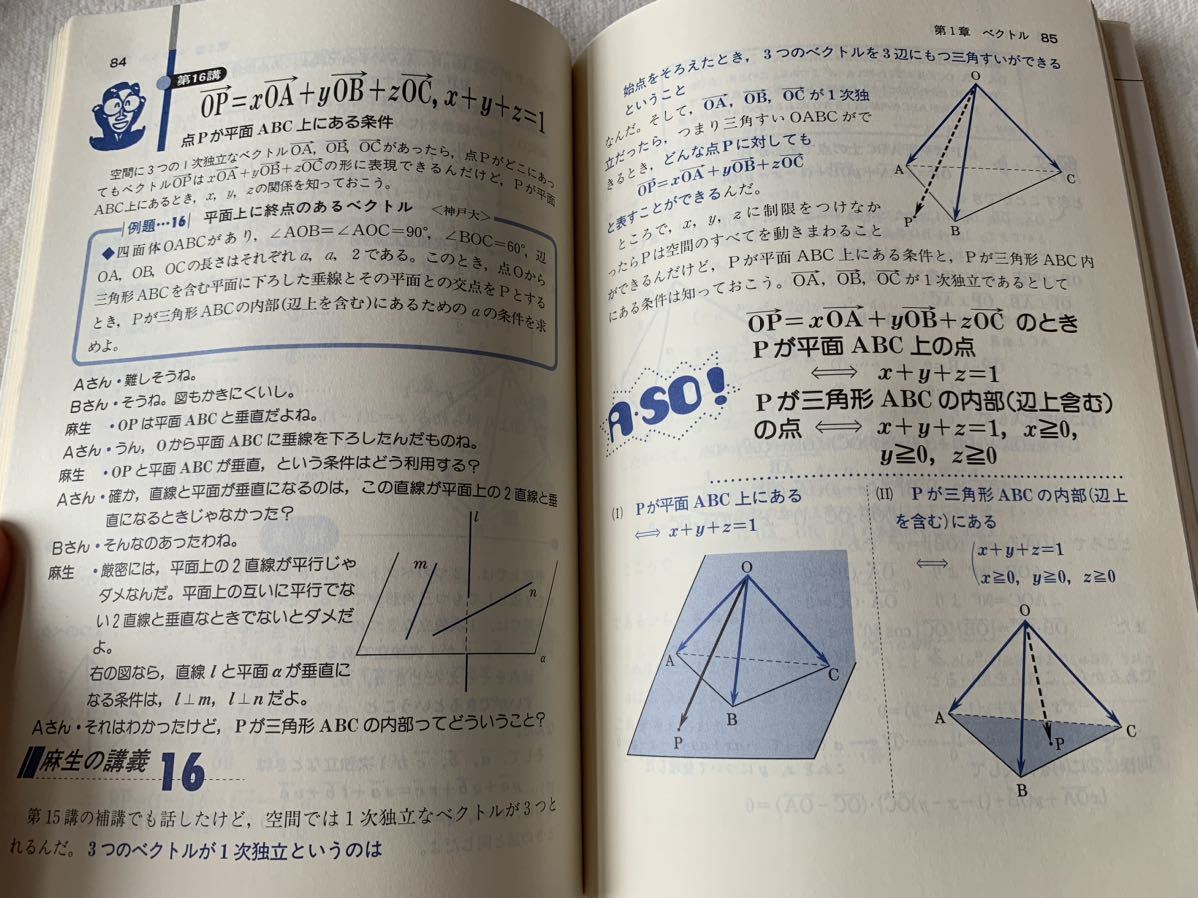 84
第16講
OP=xOA+yOB+zOC, x+y+z=1
点Pが平面ABC上にある条件
空間に3つの1次独立なベクトルOA, OB, OCがあったら，点Pがどこにあっ
てもベクトルOPはxOA+yOB+zOCの形に表現できるんだけど，Pが平面
ABC上にあるとき，x, y, zの関係を知っておこう。
例題…16 平面上に終点のあるベクトル <神戸大>
◆四面体OABCがあり，∠AOB=∠AOC=90°，∠BOC=60°，辺
OA，OB，OCの長さはそれぞれa，a，2である。このとき，点Oから
三角形ABCを含む平面に下ろした垂線とその平面との交点をPとする
とき，Pが三角形ABCの内部(辺上を含む)にあるためのaの条件を求
めよ。
Aさん・難しそうね。
Bさん・そうね。図もかきにくいし。
麻生・OPは平面ABCと垂直だよね。
Aさん・うん，Oから平面ABCに垂線を下ろしたんだものね。
麻生・OPと平面ABCが垂直，という条件はどう利用する？
Aさん・確か，直線と平面が垂直になるのは，この直線が平面上の2直線と垂
直になるときじゃなかった？
Bさん・そんなのあったわね。
麻生・厳密には，平面上の2直線が平行じゃ
ダメなんだ。平面上の互いに平行でな
い2直線と垂直なときでないとダメだ
よ。
右の図なら，直線lと平面αが垂直に
なる条件は，l⊥m，l⊥nだよ。
l
m
n
α
Aさん・それはわかったけど，Pが三角形ABCの内部ってどういうこと？
麻生の講義 16
第15講の補講でも話したけど，空間では1次独立なベクトルが3つと
れるんだ。3つのベクトルが1次独立というのは
第1章 ベクトル 85
始点をそろえたとき，3つのベクトルを3辺にもつ三角すいができる
ということ
なんだ。そして，OA，OB，OCが1次独
立だったら，つまり三角すいOABCがで
きるとき，どんな点Pに対しても
OP=xOA+yOB+zOC
と表すことができるんだ。
ところで，x，y，zに制限をつけなか
ったらPは空間のすべてを動きまわること
ができるんだけど，Pが平面ABC上にある条件と，Pが三角形ABC内
にある条件は知っておこう。OA，OB，OCが1次独立であるとして
O
A
C
P
B
A・SO!
OP=xOA+yOB+zOC のとき
Pが平面ABC上の点
⟺ x+y+z=1
Pが三角形ABCの内部(辺上含む)
の点 ⟺ x+y+z=1，x≧0，
y≧0，z≧0
(I) Pが平面ABC上にある
⟺ x+y+z=1
O
A
C
B
P
(II) Pが三角形ABCの内部(辺上
を含む)にある
⟺ (x+y+z=1
x≧0，y≧0，z≧0
O
A
C
P
B